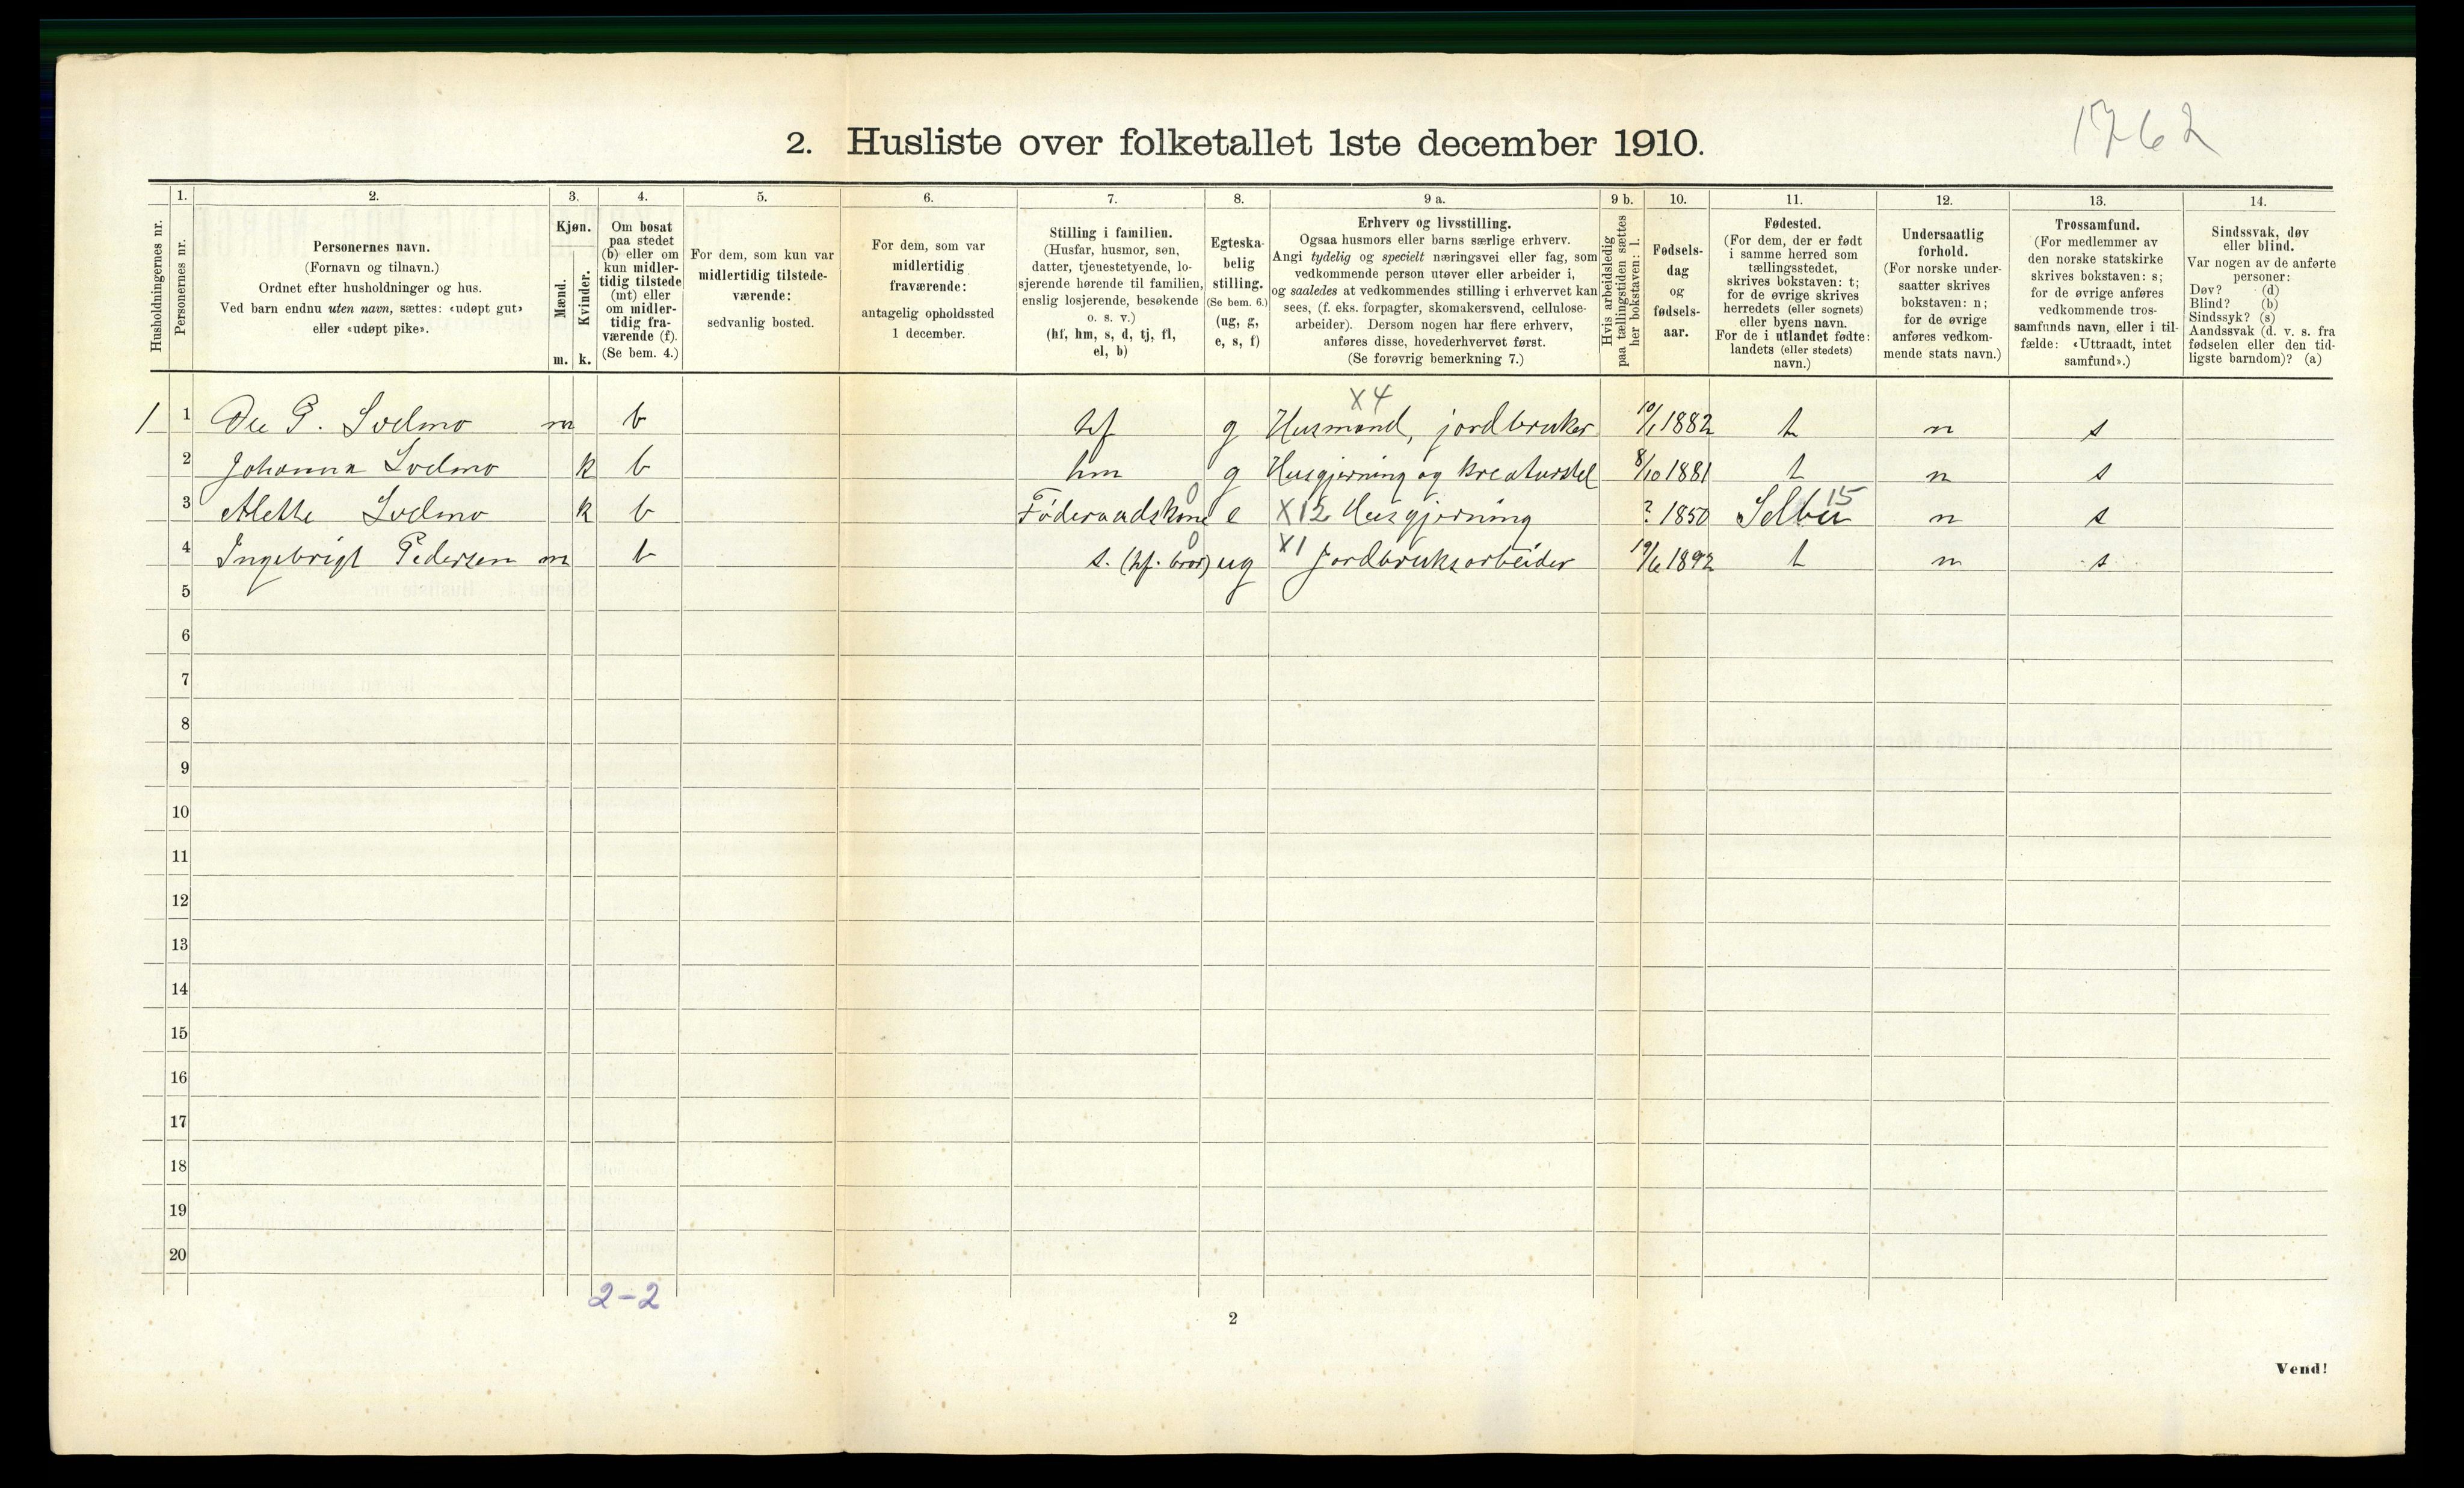 1762
2. Husliste over folketallet 1ste december 1910.
Husholdningernes nr.
1.
Personernes nr.
2.
Personernes navn.
(Fornavn og tilnavn.)
Ordnet efter husholdninger og hus.
Ved barn endnu uten navn, sættes: «udøpt gut»
eller «udøpt pike».
3.
Kjøn.
Mænd.
Kvinder.
m. k.
4.
Om bosat
paa stedet
(b) eller om
kun midler-
tidig tilstede
(mt) eller
om midler-
tidig fra-
værende (f).
(Se bem. 4.)
5.
For dem, som kun var
midlertidig tilstede-
værende:
sedvanlig bosted.
6.
For dem, som var
midlertidig
fraværende:
antagelig opholdssted
1 december.
7.
Stilling i familien.
(Husfar, husmor, søn,
datter, tjenestetyende, lo-
sjerende hørende til familien,
enslig losjerende, besøkende
o. s. v.)
(hf, hm, s, d, tj, fl,
el, b)
8.
Egteska-
belig
stilling.
(Se bem. 6.)
(ug, g,
e, s, f)
9 a.
Erhverv og livsstilling.
Ogsaa husmors eller barns særlige erhverv.
Angi tydelig og specielt næringsvei eller fag, som
vedkommende person utøver eller arbeider i,
og saaledes at vedkommendes stilling i erhvervet kan
sees, (f. eks. forpagter, skomakersvend, cellulose-
arbeider). Dersom nogen har flere erhverv,
anføres disse, hovederhvervet først.
(Se forøvrig bemerkning 7.)
9 b.
Hvis arbeidsledig
paa tællingstiden sættes
her bokstaven: l.
10.
Fødsels-
dag
og
fødsels-
aar.
11.
Fødested.
(For dem, der er født
i samme herred som
tællingsstedet,
skrives bokstaven: t;
for de øvrige skrives
herredets (eller sognets)
eller byens navn.
For de i utlandet fødte:
landets (eller stedets)
navn.)
12.
Undersaatlig
forhold.
(For norske under-
saatter skrives
bokstaven: n;
for de øvrige
anføres vedkom-
mende stats navn.)
13.
Trossamfund.
(For medlemmer av
den norske statskirke
skrives bokstaven: s;
for de øvrige anføres
vedkommende tros-
samfunds navn, eller i til-
fælde: «Uttraadt, intet
samfund».)
14.
Sindssvak, døv
eller blind.
Var nogen av de anførte
personer:
Døv? (d)
Blind? (b)
Sindssyk? (s)
Aandssvak (d. v. s. fra
fødselen eller den tid-
ligste barndom)? (a)
X 4
1 1 Ole P. m b hf g Husmand, jordbruker 10/1 1882 t n s
2 Johanna k b hm g Husgjerning og kreaturstel 8/10 1881 t n s
0 15
3 Alette k b Føderaadskone e X12 Husgjerning ? 1850 Selbu n s
0
4 Ingebrigt Pedersen m b s. (hf. bror) ug X1 Jordbruksarbeider 19/6 1892 t n s
5
6
7
8
9
10
11
12
13
14
15
16
17
18
19
20
2-2
2
Vend!